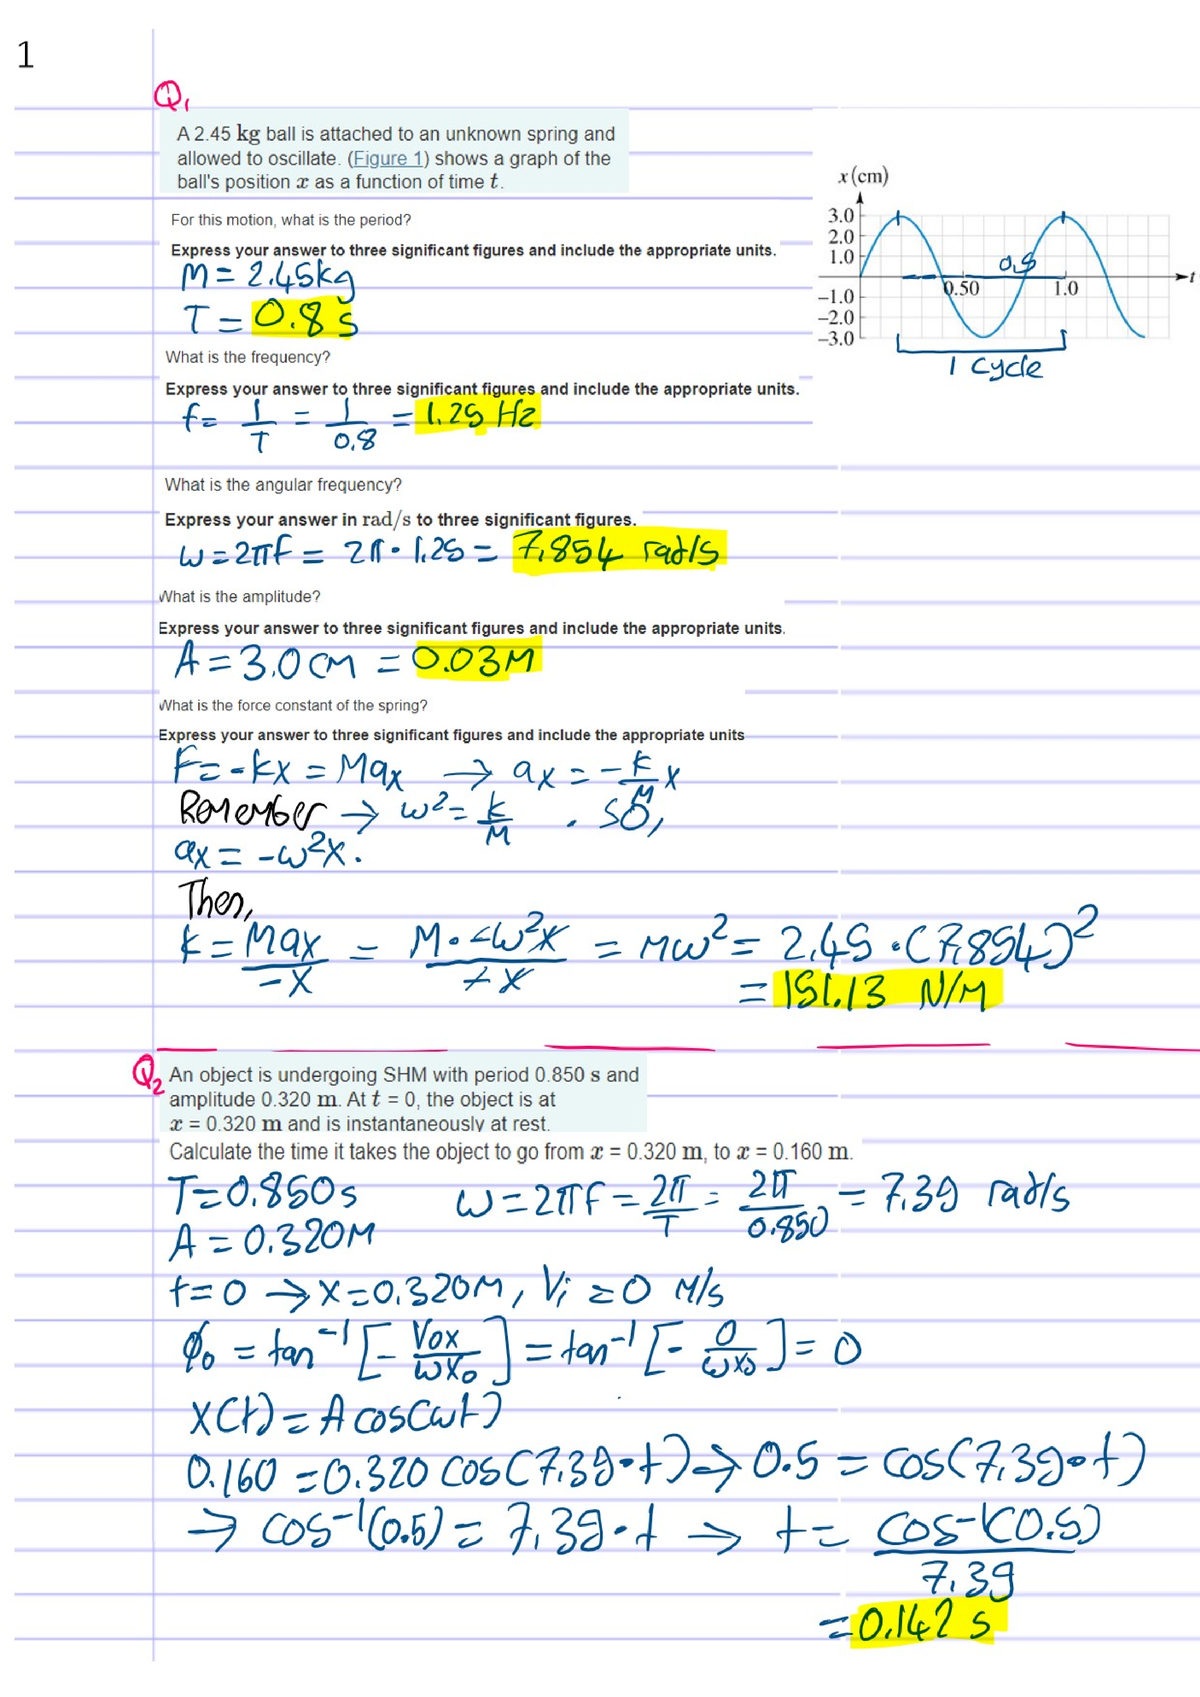 1
Q1
A 2.45 kg ball is attached to an unknown spring and
allowed to oscillate. (Figure 1) shows a graph of the
ball's position x as a function of time t.
x (cm)
3.0
2.0
1.0
-1.0
-2.0
-3.0
0.50
1.0
t
0.8
1 cycle
For this motion, what is the period?
Express your answer to three significant figures and include the appropriate units.
M = 2.45kg
T = 0.8 s
What is the frequency?
Express your answer to three significant figures and include the appropriate units.
f = 1/T = 1/0.8 = 1.25 Hz
What is the angular frequency?
Express your answer in rad/s to three significant figures.
ω = 2πf = 2π · 1.25 = 7.854 rad/s
What is the amplitude?
Express your answer to three significant figures and include the appropriate units.
A = 3.0 cm = 0.03M
What is the force constant of the spring?
Express your answer to three significant figures and include the appropriate units
F = -kx = Max → ax = -k/M x
Remember → ω² = k/M . so,
ax = -ω²x.
Then,
k = Max/-x = M·-ω²x/-x = Mω² = 2.45 · (7.854)²
= 151.13 N/M
Q2
An object is undergoing SHM with period 0.850 s and
amplitude 0.320 m. At t = 0, the object is at
x = 0.320 m and is instantaneously at rest.
Calculate the time it takes the object to go from x = 0.320 m, to x = 0.160 m.
T = 0.850s ω = 2πf = 2π/T = 2π/0.850 = 7.39 rad/s
A = 0.320M
t = 0 → x = 0.320M, Vi = 0 M/s
ϕ0 = tan⁻¹[- V0x/ωx0] = tan⁻¹[- 0/ωx0] = 0
x(t) = A cos(ωt)
0.160 = 0.320 cos(7.39·t) → 0.5 = cos(7.39·t)
→ cos⁻¹(0.5) = 7.39·t → t = cos⁻¹(0.5)/7.39
= 0.142 s